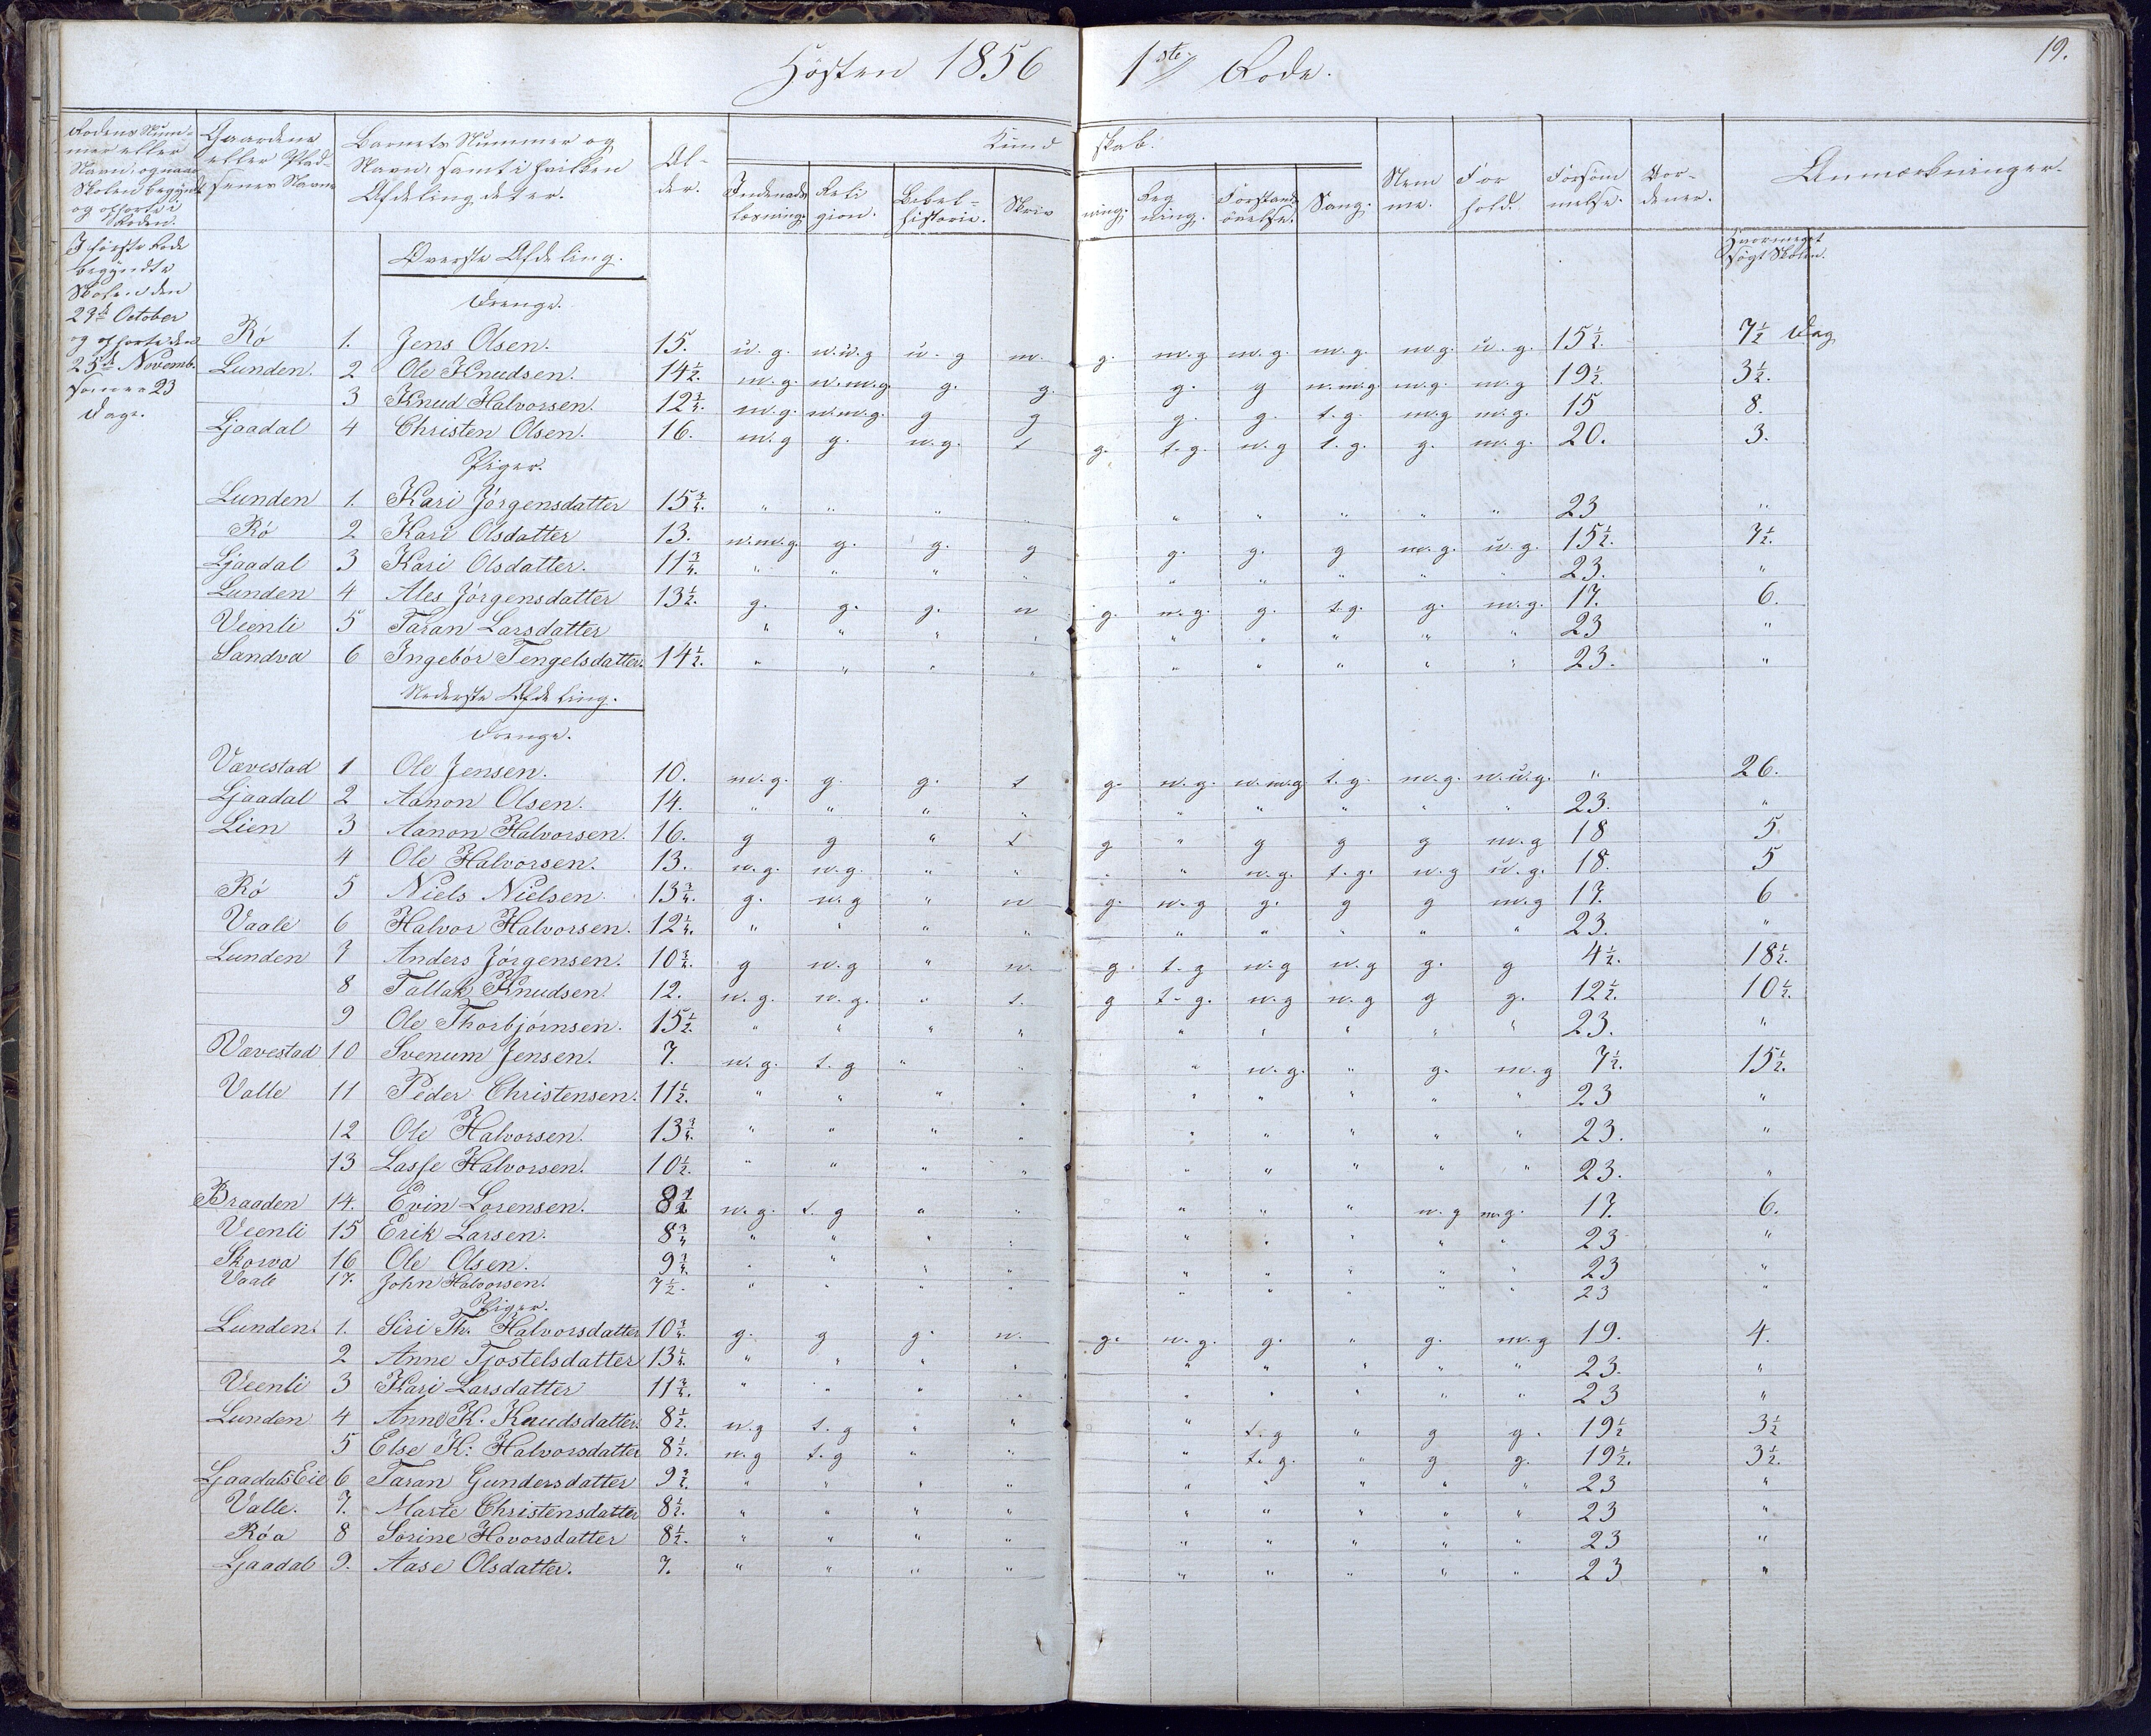 Hösten 1856 1ste Rode.
19.
Rodens Num-
mer eller
Navn, og naar
Skolen begyndt
og ophørte i
Roden.
Gaardens
eller Plad-
senes Navn
Barnets Nummer og
Navn, samt i hvilken
Afdeling det er.
Al-
der.
Kund skab.
Indenads
læsning.
Reli
gion.
Bibel-
historie.
Skriv
ning.
Reg
ning.
Forstands
øvelse.
Sang.
Nem
me.
For
hold.
Forsöm
melse.
Vor-
dener.
Anmærkninger.
Hvormeget
søgt Skolen.
I første Rode
begyndte
Skolen den
29de October
og ophørte den
25de Novemb.
som er 23
Dage.
Øverste Afdeling.
Drenge.
Rö 1. Jens Olsen. 15. u. g. n.u.g u. g m. g. m.g m.g. m.g. m.g. u.g. 15½. 7½ Dag
Lunden. 2 Ole Knudsen. 14½. m.g. n.m.g g. g. g. g n.m.g. m.g. m.g 19½. 3½.
3 Knud Halvorsen. 12¾. m.g. n.m.g. g g g. g. t.g. m.g m.g. 15 8.
Ljaadal 4 Christen Olsen. 16. m.g g. n.g. t g. t.g. n.g t.g. g. m.g. 20. 3.
Piger.
Lunden 1. Kari Jörgensdatter 15¾. " " " " " " " " " 23 "
Rö 2 Kari Olsdatter 13. n.m.g. g. g. g g. g. g m.g. u.g. 15½. 7½.
Ljaadal 3 Kari Olsdatter. 11¾. " " " " " " " " " 23. "
Lunden 4 Ales Jörgensdatter 13½. g. g. g. n g. n.g. g. t.g. g. m.g. 17. 6.
Veenli 5 Taran Larsdatter " " " " " " " " " 23 "
Sandva 6 Ingebór Tengelsdatter. 14½. " " " " " " " " " 23. "
Nederste Afdeling.
Drenge.
Vævestad 1 Ole Jensen. 10. m.g. g. g. t g. n.g. n.m.g t.g. m.g. n.u.g. " 26.
Ljaadal 2 Aanon Olsen. 14. " " " " " " " " " 23. "
Lien 3 Aanon Halvorsen. 16. g g " t g " g g g m.g 18 5
4 Ole Halvorsen. 13. n.g. n.g. " " " " n.g. t.g. n.g u.g. 18. 5
Rö 5 Niels Nielsen 13¾. g. n.g " n g. n.g g. g g m.g 17. 6
Vaale 6 Halvor Halvorsen. 12¼. " " " " " " " " " 23. "
Lunden 7 Anders Jörgensen. 10¾. g n.g " n. g. t.g n.g n.g g. g 4½. 18½.
8 Tallak Knudsen. 12. n.g. n.g. " t. g t-g. n.g n.g g g. 12½. 10½.
9 Ole Thorbjörnsen. 15½. " " " " " " " " " 23. "
Vævestad 10 Svenum Jensen. 7. n.g. t.g " " " n.g. " g. m.g 7½. 15½.
Valle 11 Peder Christensen. 11½. " " " " " " " " " 23 "
12 Ole Halvorsen. 13¾. " " " " " " " " " 23. "
13 Lasse Halvorsen. 10½. " " " " " " " " " 23. "
Braaden 14. Evin Lorensen. 8½ n.g. t.g " " " " " n.g m.g. 17. 6.
Veenli 15 Erik Larsen. 8¾ " " " " " " " " " 23 "
Skorva 16 Ole Olsen. 9¾. " " " " " " " " " 23 "
Vaale 17. John Halvorsen. 7½. " " " " " " " " " 23 "
Piger.
Lunden. 1. Siri Th. Halvorsdatter 10¾. g. g g. n. g. n.g. g. " g. m.g 19. 4.
2 Anne Tjostelsdatter 13¼. " " " " " " " " " 23. "
Veenli 3 Kari Larsdatter 11¾. " " " " " " " " " 23 "
Lunden 4 Anne K. Knudsdatter. 8½. n.g t.g " " " t.g " g g. 19½ 3½
5 Else K: Halvorsdatter 8½. n.g t.g " " " t.g. " g g. 19½. 3½.
Ljaadals Eie 6 Taran Gundersdatter 9½. " " " " " " " " " 23 "
Valle. 7. Marte Christensdatter 8½. " " " " " " " " " 23 "
Röa 8 Sorine Hovorsdatter 8½. " " " " " " " " " 23 "
Ljaadal 9. Aase Olsdatter. 7. " " " " " " " " " 23 "